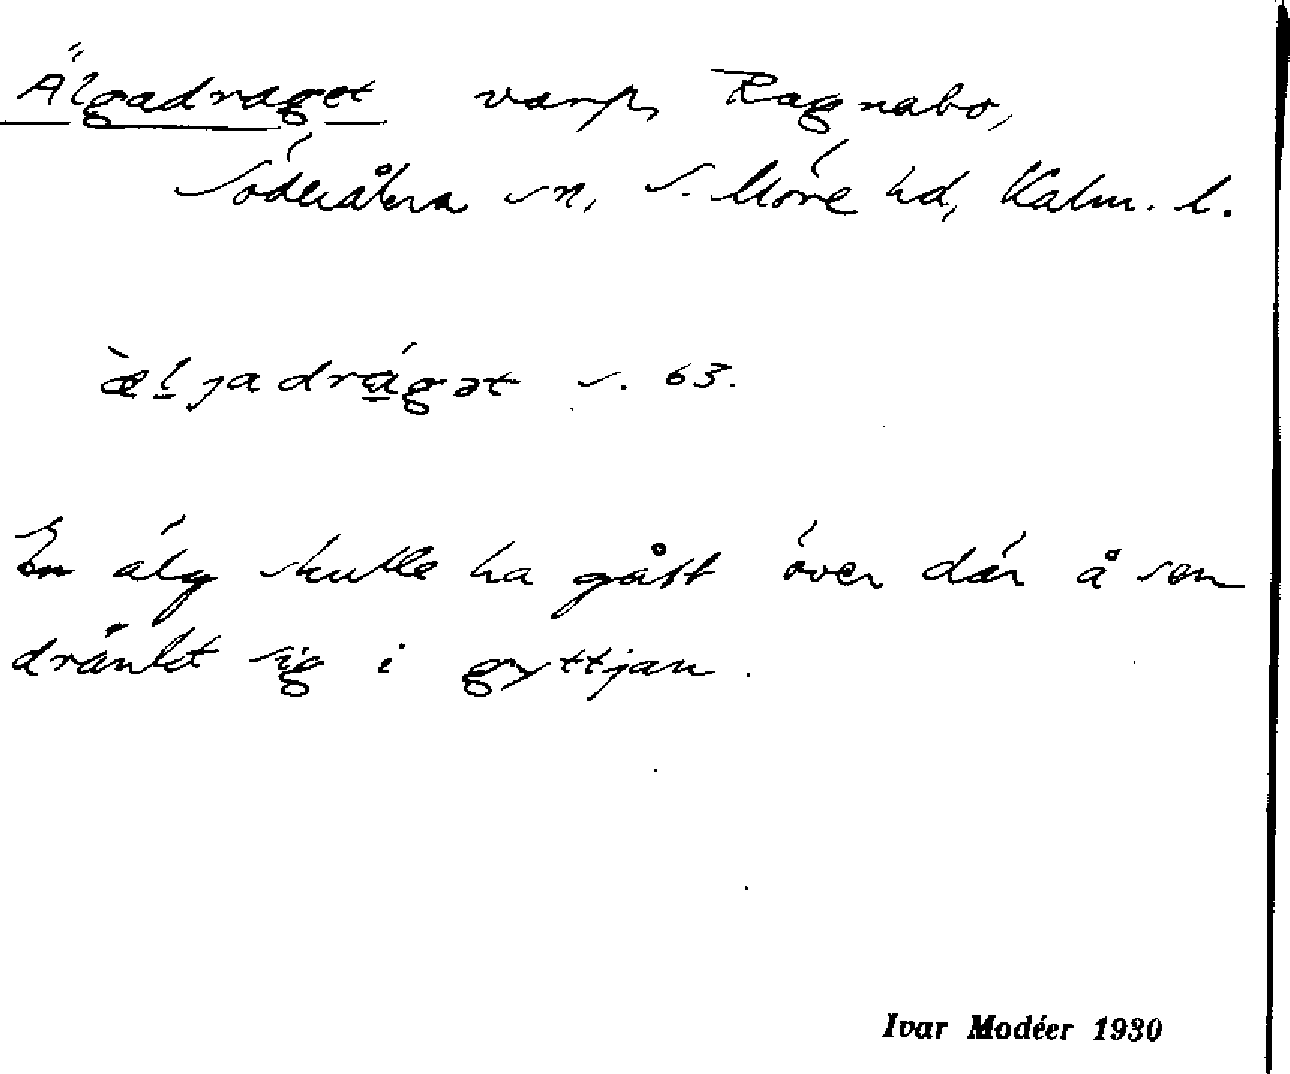 Älgadraget varp, Ragnabo,
Söderåkra sn, S. Möre hd, Kalm. l.
æ̀l̠jadrá̠gət s. 63.
En älg skulle ha gått över där å sen
dränkt sig i gyttjan.
Ivar Modéer 1930